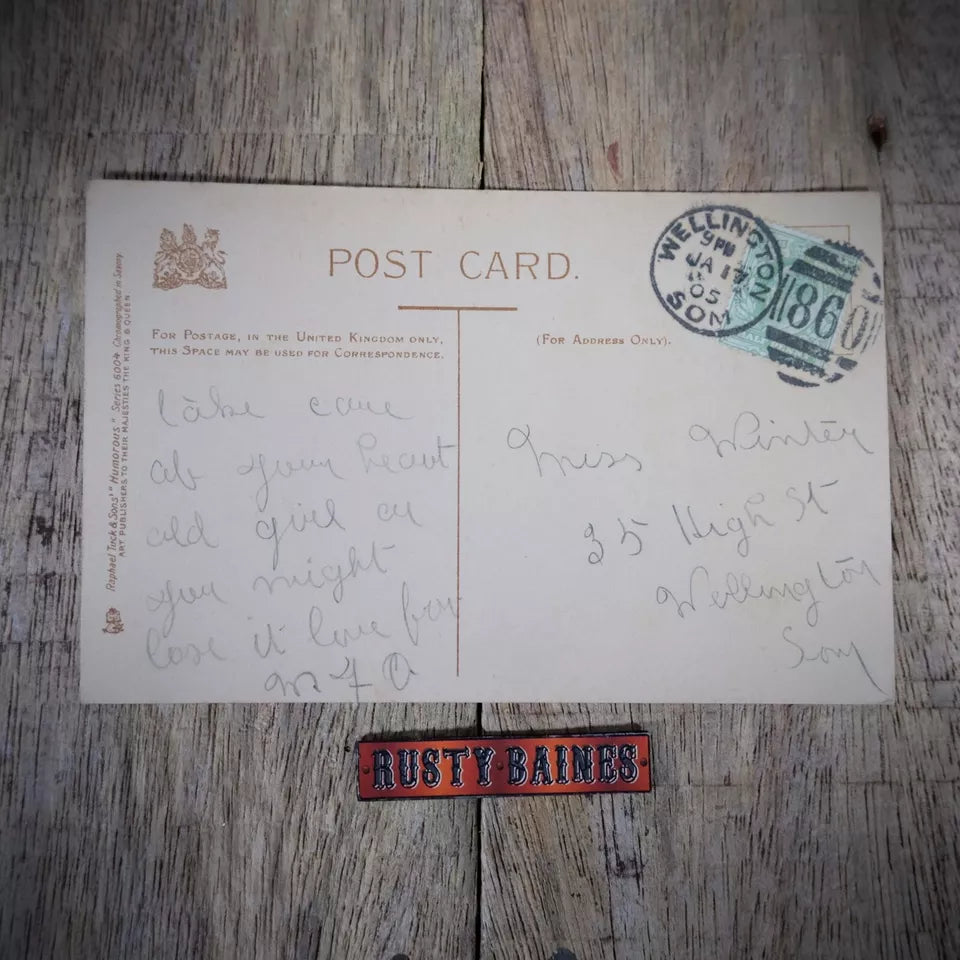 POST CARD.
FOR POSTAGE, IN THE UNITED KINGDOM ONLY,
THIS SPACE MAY BE USED FOR CORRESPONDENCE.
(FOR ADDRESS ONLY).
WELLINGTON
9 PM
JA 17
05
SOM
86
Raphael Tuck & Sons' "Humorous" Series 6004 Chromographed in Saxony
ART PUBLISHERS TO THEIR MAJESTIES THE KING & QUEEN
take care
of your heart
old girl or
you might
lose it love from
M F O
Miss Winter
35 High St
Wellington
Som
RUSTY BAINES